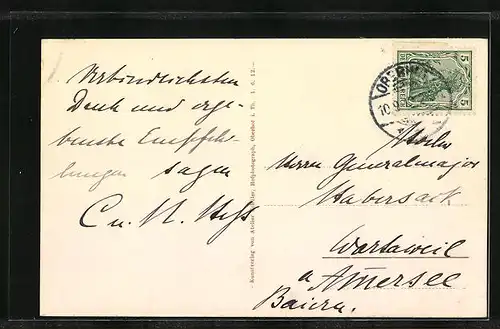 Verbindlichsten
Dank und erge-
benste Empfeh-
lungen sagen
Kunstverlag von Atelier Hofphotograph, Oberhof i. Th. 1. 6. 12.
5 5
DEUTSCHES REICH
OBERH
10.9
Herrn Generalmajor
Habersack
Wartaweil
a Ammersee
Baiern.